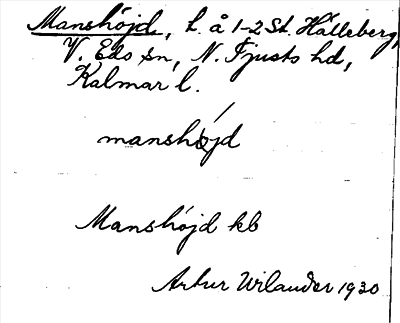 Manshöjd, l. å 1-2 St. Hålleberg,
V. Eds sn, N. Tjusts hd,
Kalmar l.
manshöjd
Manshöjd kb
Artur Wilander 1930